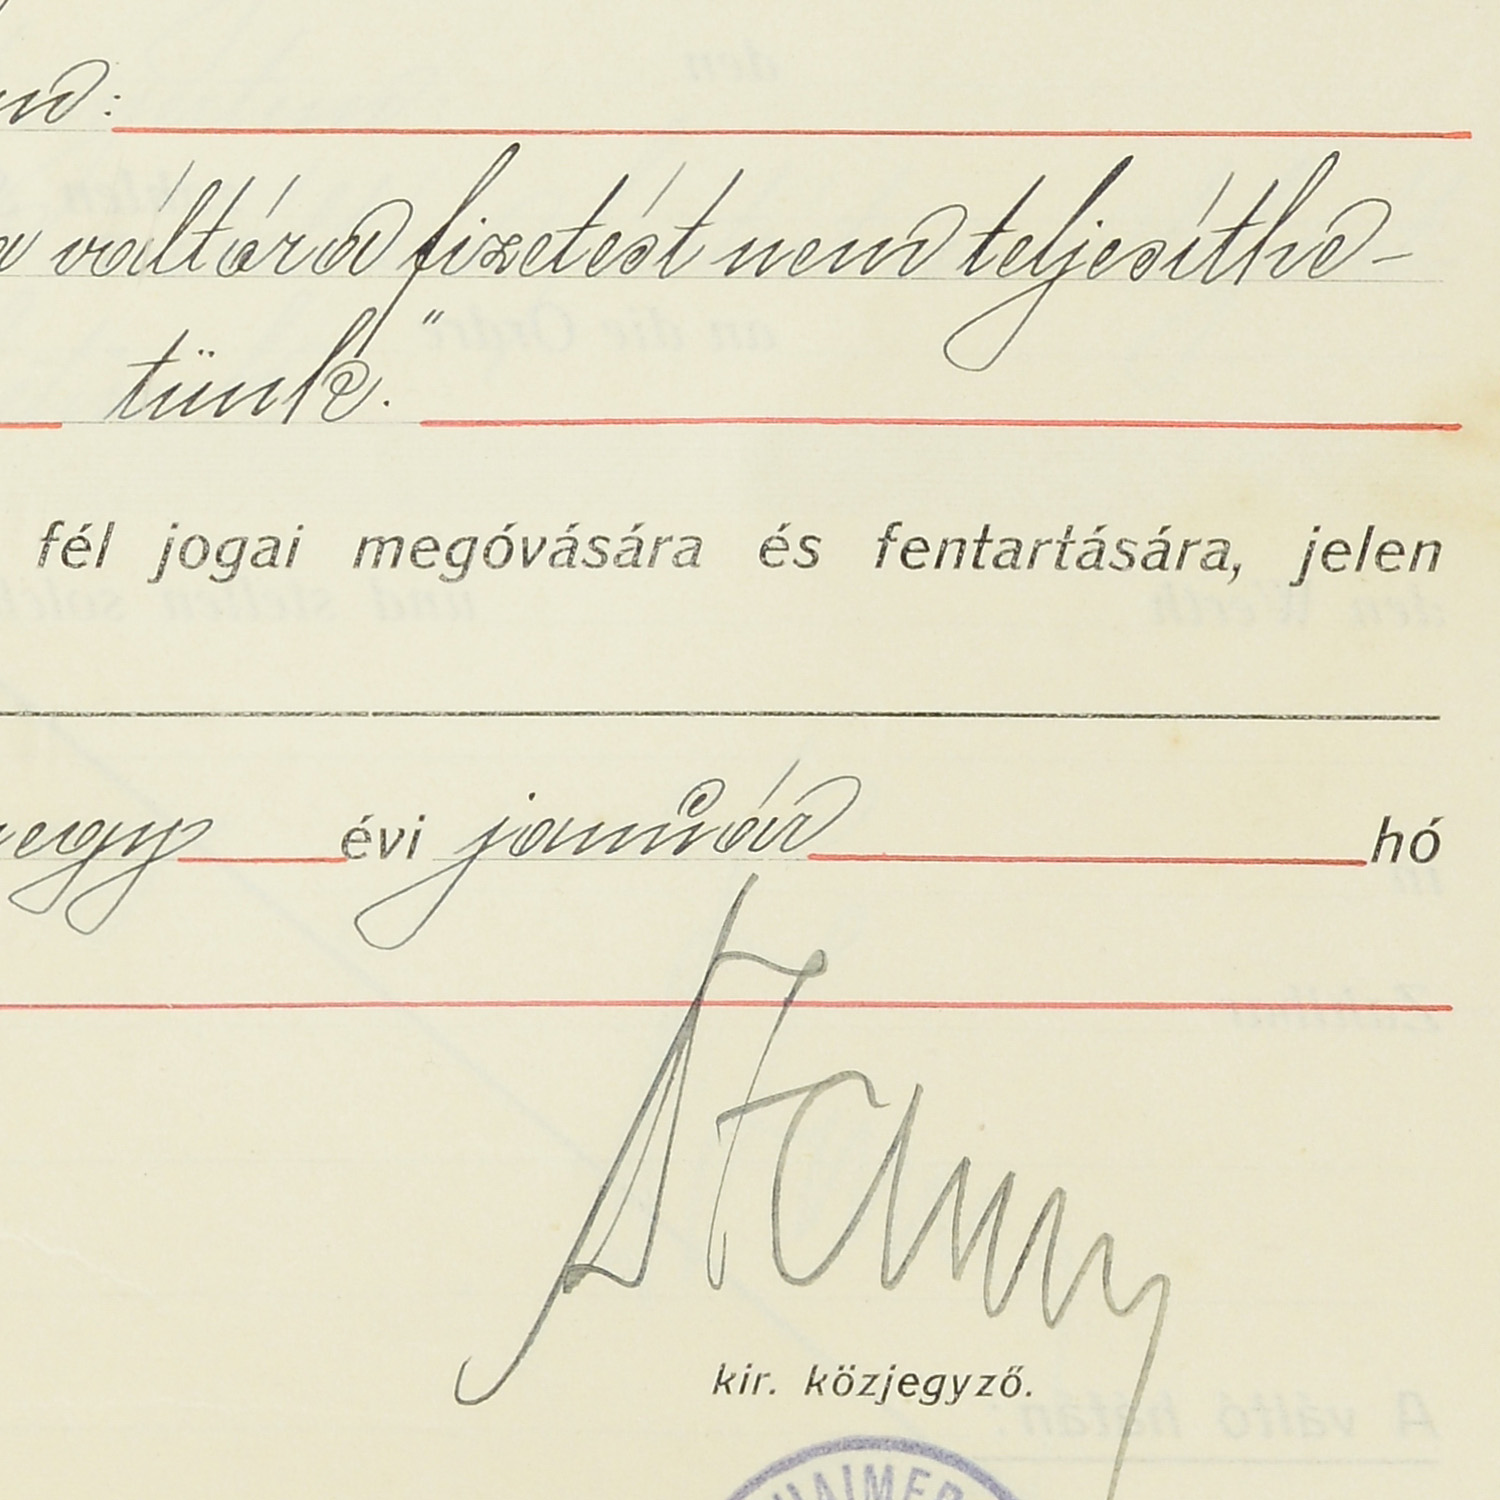 váltóra fizetést nem teljesíthe-
tünk."
fél jogai megóvására és fentartására, jelen
évi január hó
kir. közjegyző.